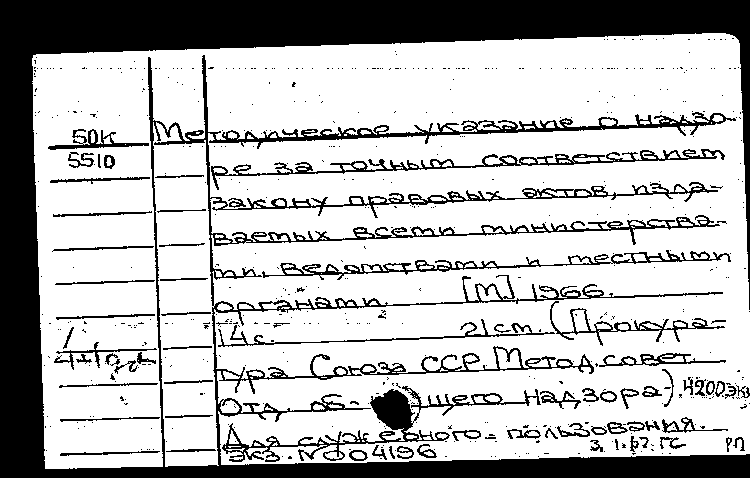 50К Методическое указание о надзо-
5510 ре за точным соответствием
закону правовых актов, изда-
ваемых всеми министерства-
ми, ведомствами и местными
органами. [М] 1966.
14с. 21см. (Прокура-
тура Союза ССР. Метод. совет.
Отд. об- щего надзора). 4200экз
Для служебного пользования.
экз. № 004196
РП